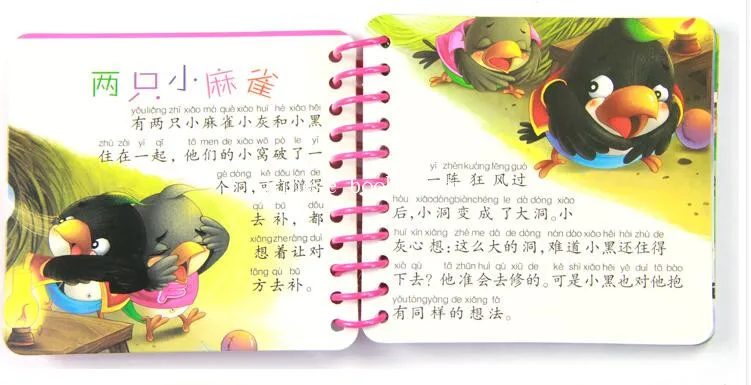 两只小麻雀
yǒuliǎng zhī xiǎo má què xiǎo huī hé xiǎo hēi
有两只小麻雀小灰和小黑
zhù zài yì qǐ tā men de xiǎo wō pò le yí
住在一起，他们的小窝破了一
gè dòng kě dōu lǎn de
个洞，可都懒得
qù bǔ dōu
去补，都
xiǎngzheràng duì
想着让对
fāng qù bǔ
方去补。
yí zhènkuángfēngguò
一阵狂风过
hòu xiǎodòngbiànchéng le dà dòng xiǎo
后，小洞变成了大洞。小
huī xīn xiǎng zhè me dà de dòng nán dào xiǎo hēi hái zhù de
灰心想：这么大的洞，难道小黑还住得
xià qù tā zhǔn huì qù xiū de kě shì xiǎo hēi yě duì tā bào
下去？他准会去修的。可是小黑也对他抱
yǒutóngyàng de xiǎng fǎ
有同样的想法。